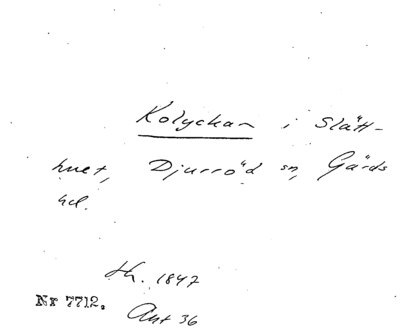 Kolyckan i Slätt-
huet, Djurröd sn, Gärds
hd.
th. 1847
Nr 7712.
Ant 36